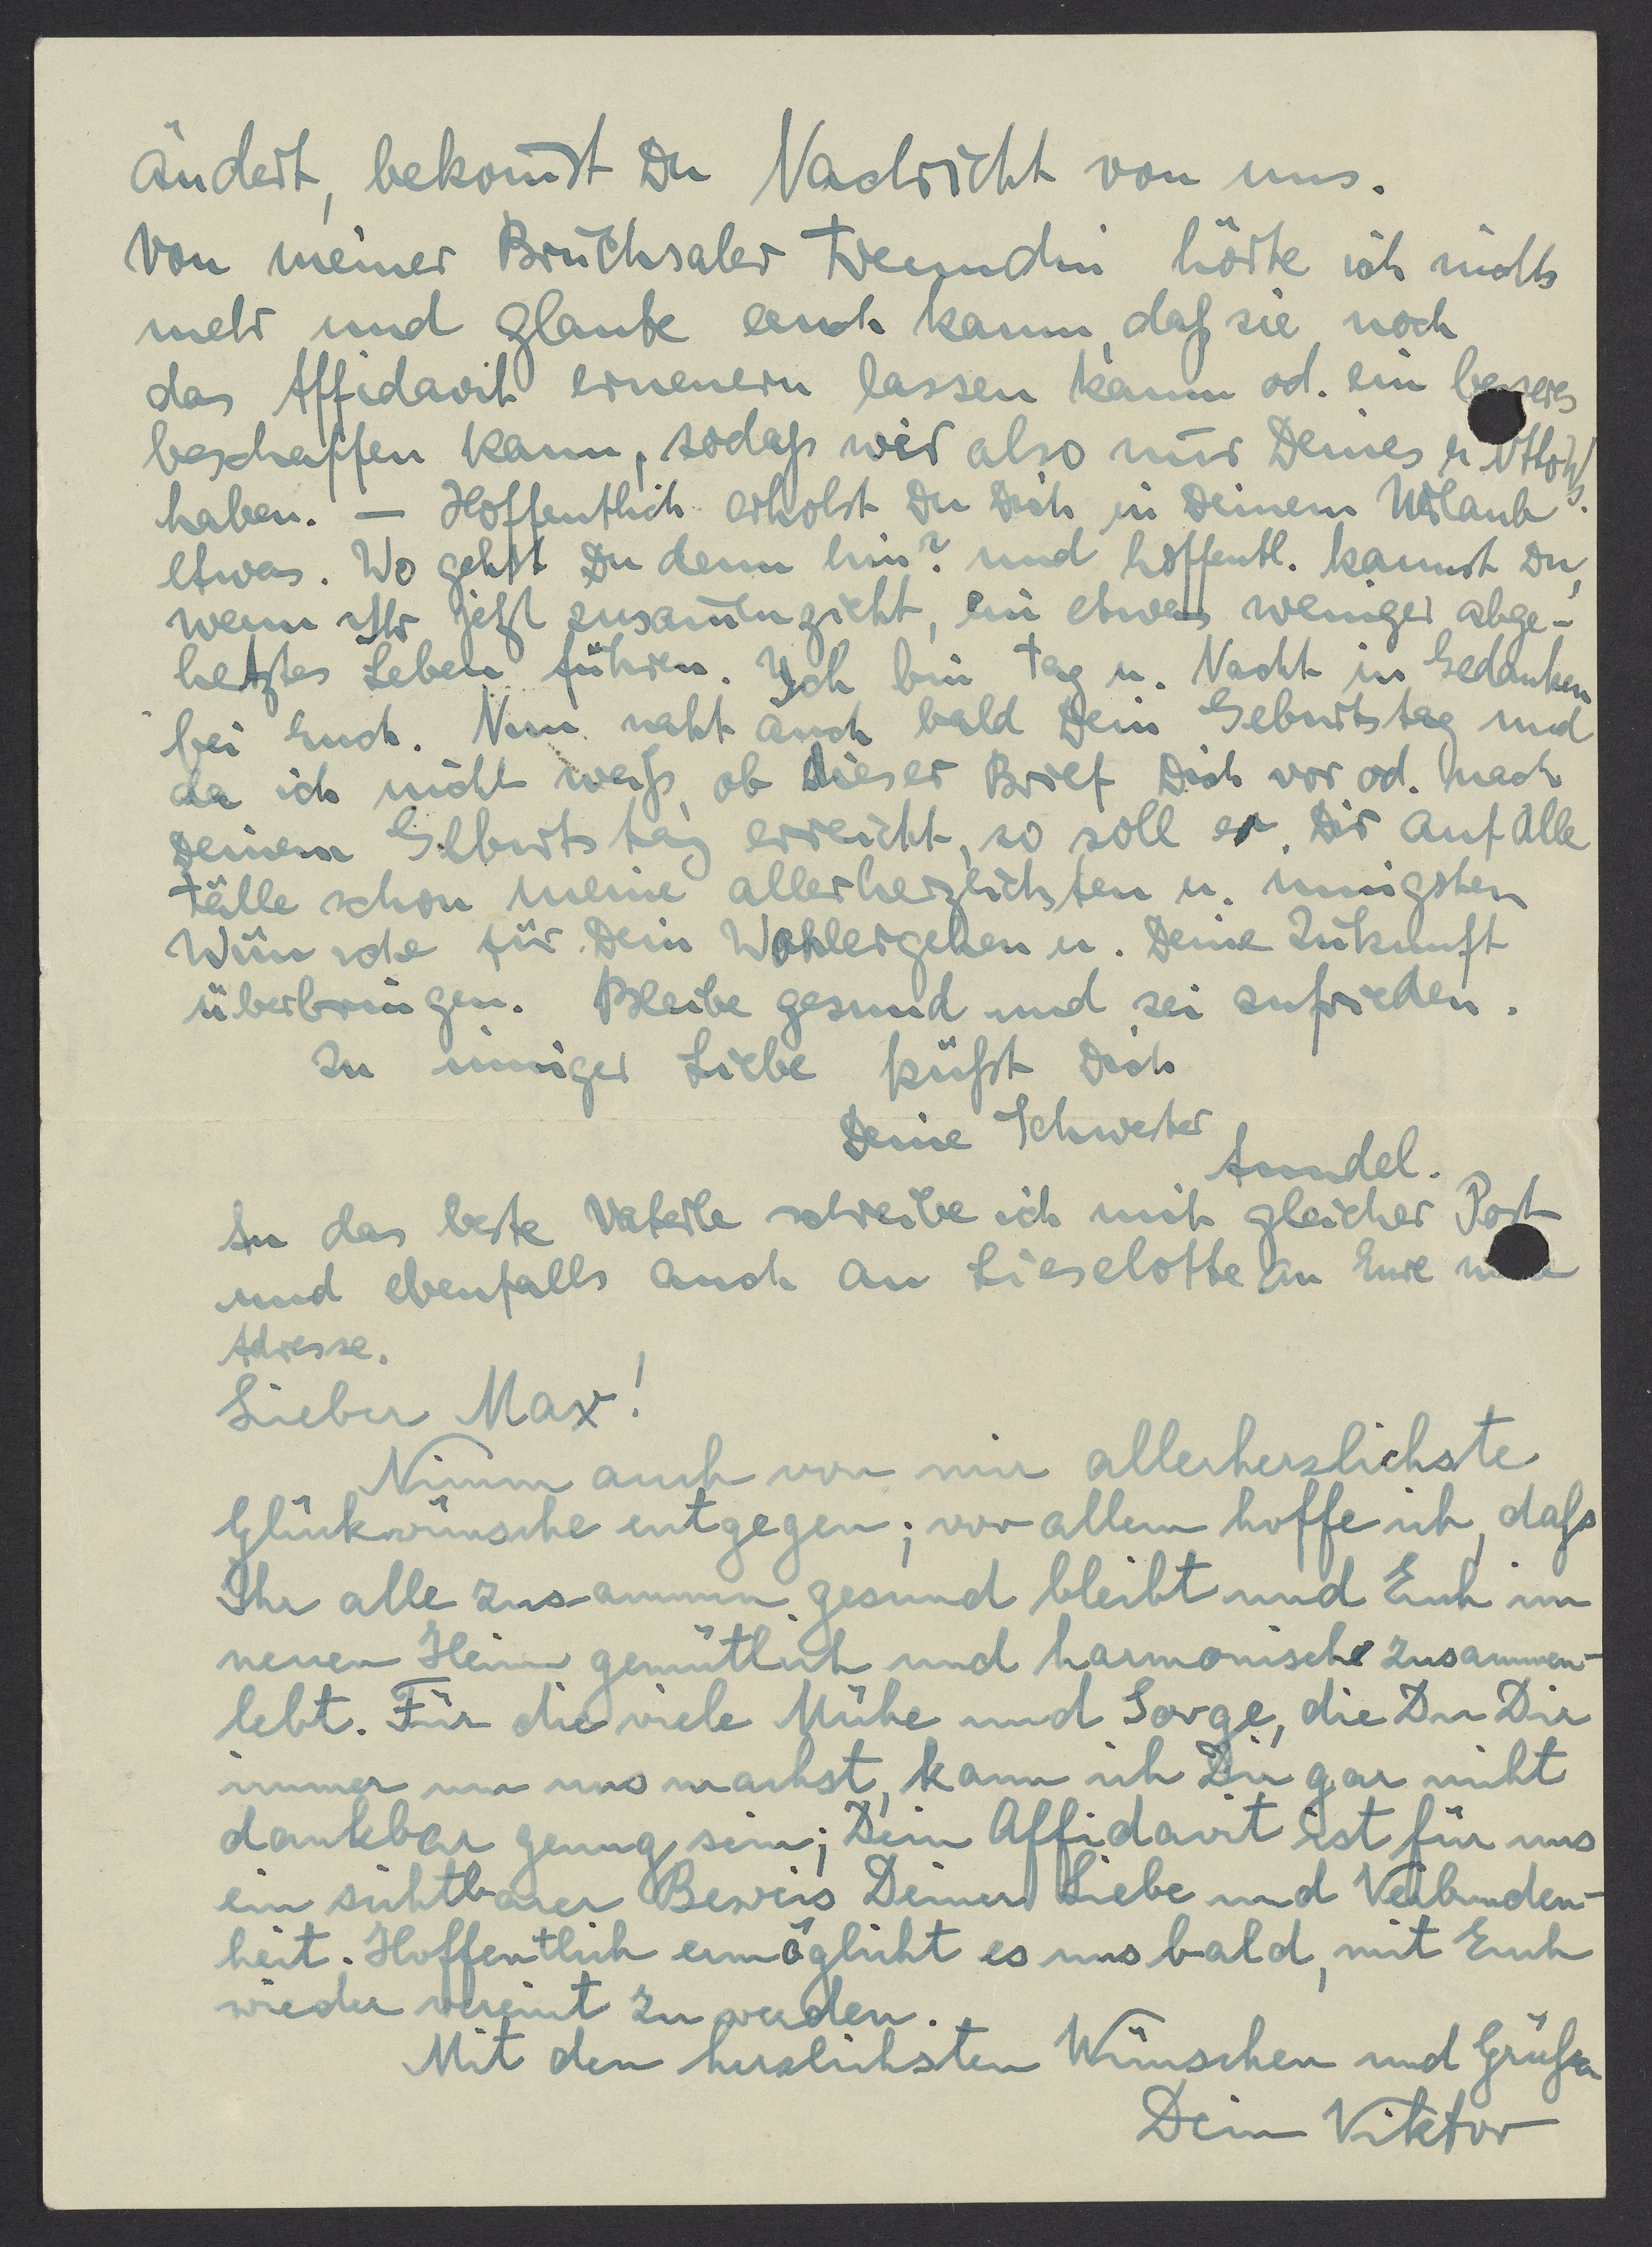 ändert, bekom̄st Du Nachricht von uns.
Von meiner Bruchsaler Freundin hörte ich nichts
mehr und glaube auch kaum, daß sie noch
das Affidavit erneuern lassen kann od. ein besseres
beschaffen kann, sodaß wir also nur Deines u. Ottos
haben. — Hoffentlich erholst Du Dich in Deinem Urlaub
etwas. Wo gehst Du denn hin? und hoffentl. kannst Du,
wenn Ihr jetzt zusam̄enzieht, ein etwas weniger abge-
hetztes Leben führen. Ich bin Tag u. Nacht in Gedanken
bei Euch. Nun naht auch bald Dein Geburtstag und
da ich nicht weiß, ob dieser Brief Dich vor od. nach
Deinem Geburtstag erreicht, so soll er Dir auf alle
Fälle schon meine allerherzlichsten u. innigsten
Wünsche für Dein Wohlergehen u. Deine Zukunft
überbringen. Bleibe gesund und sei zufrieden.
In inniger Liebe küßt Dich
Deine Schwester
Anndel.
An das beste Vaterle schreibe ich mit gleicher Post
und ebenfalls auch an Lieselotte an Eure neue
Adresse.
Lieber Max!
Nimm auch von mir allerherzlichste
Glückwünsche entgegen; vor allem hoffe ich, daß
Ihr alle zusammen gesund bleibt und Euch im
neuen Heim gemütlich und harmonisch zusammen-
lebt. Für die viele Mühe und Sorge, die Du Dir
immer um uns machst, kann ich Dir gar nicht
dankbar genug sein; Dein Affidavit ist für uns
ein sichtbarer Beweis Deiner Liebe und Verbunden-
heit. Hoffentlich ermöglicht es uns bald, mit Euch
wieder vereint zu werden.
Mit den herzlichsten Wünschen und Grüßen
Dein Viktor